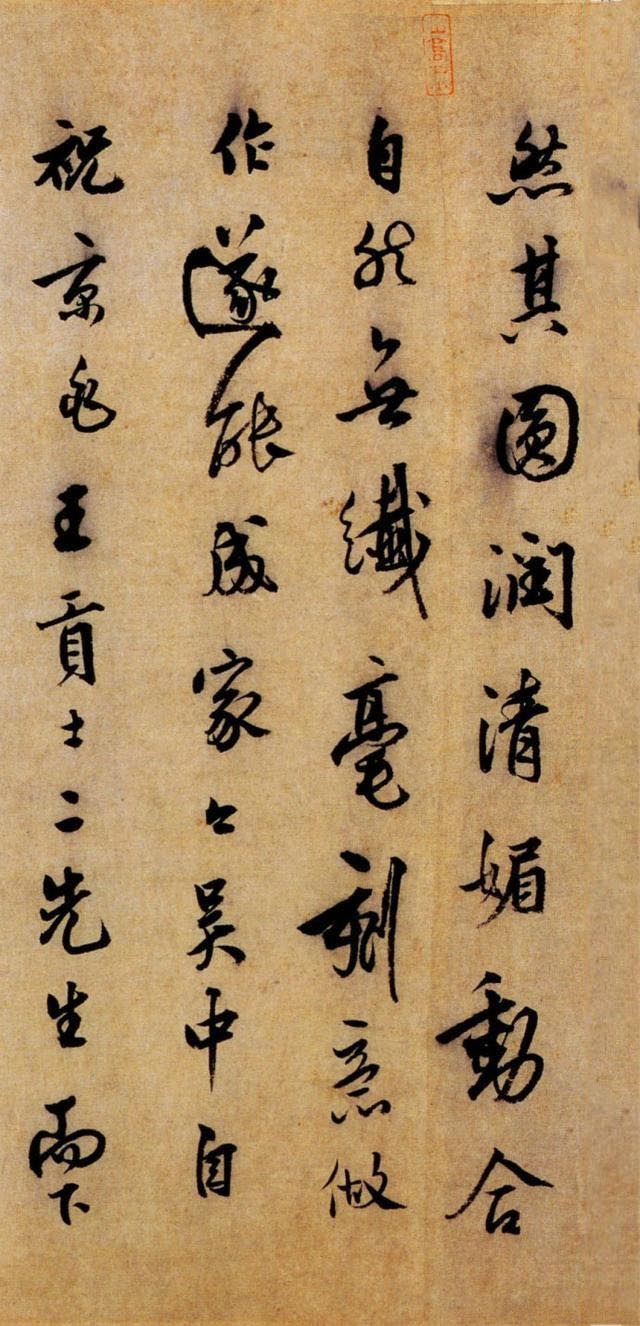 然其圓潤清媚動合
自然無纖毫刻意做
作遂能成家云吴中自
祝京兆王貢士二先生而下